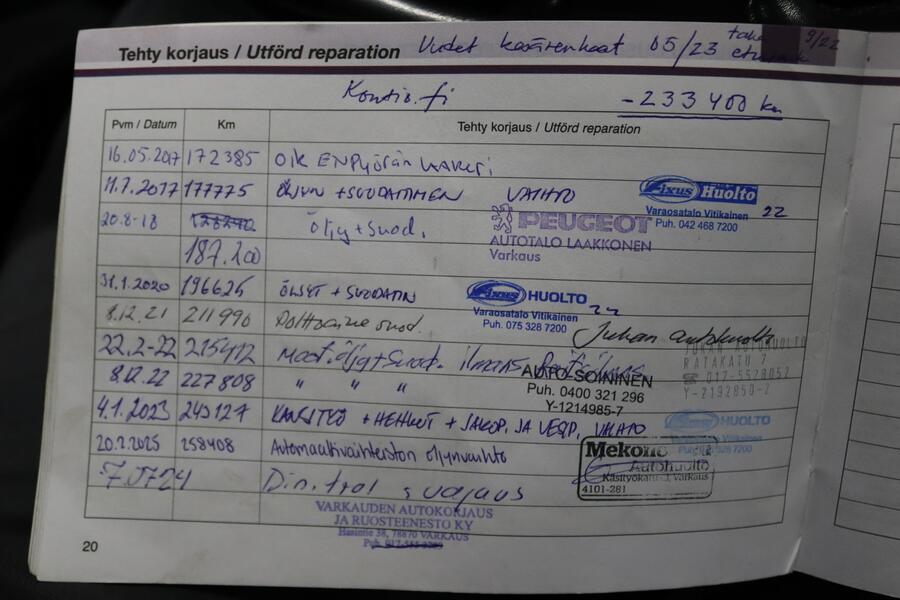 Tehty korjaus / Utförd reparation Uudet kesärenkaat 05/23 9/22
Kontio.fi -233 400 km
Pvm / Datum Km Tehty korjaus / Utförd reparation
16.05.2017 172385 OIK ENPYÖRÄN LAAKERI
11.7.2017 177775 ÖLJYN + SUODATTIMEN VAIHTO
Fixus Huolto
Varaosatalo Vitikainen 22
Puh. 042 468 7200
20.8-18 öljy + suod.
PEUGEOT
AUTOTALO LAAKKONEN
Varkaus
187.200
31.1.2020 196625 ÖLJYT + SUODATIN
Fixus HUOLTO
Varaosatalo Vitikainen
Puh. 075 328 7200
8.12.21 211990 Polttoaine suod. Juhan autohuolto
JUHAN AUTOHUOLTO
RATAKATU 7
017-5528052
Y-2192850-2
22.2-22 215412 moot.öljy + suod. ilmans.
AUTO SOININEN
Puh. 0400 321 296
Y-1214985-7
8.12.22 227808 " " "
4.1.2023 243127 + HEHKUT + JAKOP. JA VESIP. VAIHTO
HUOLTO
20.2.2025 258408 Automaattivaihteiston öljynvaihto
Mekono
Autohuolto
Käsityökatu Varkaus
4101-281
Dinitrol suojaus
VARKAUDEN AUTOKORJAUS
JA RUOSTEENESTO KY
Hasintie 38, 78870 VARKAUS
20